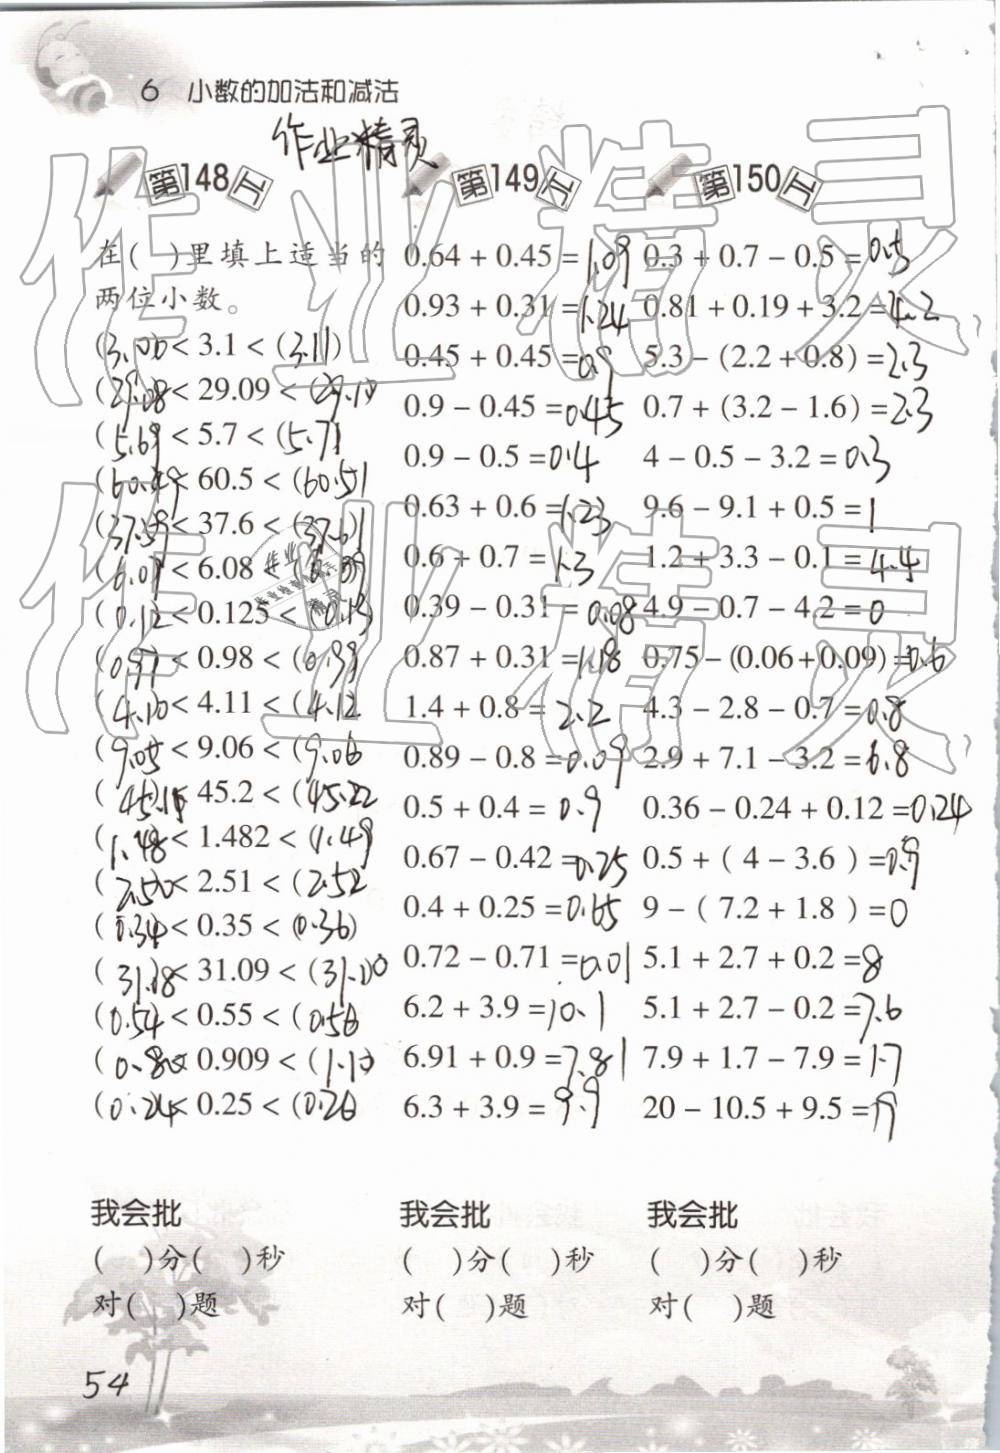 6 小数的加法和减法
作业精灵
第148工
在( )里填上适当的
两位小数。
(3.00)<3.1<(3.11)
(29.08<29.09<(29.10
(5.69<5.7<(5.71
(60.49<60.5<(60.51
(37.59<37.6<(37.61)
(6.07<6.08<(6.09
(0.12<0.125<(0.13
(0.97<0.98<(0.99
(4.10<4.11<(4.12
(9.05<9.06<(9.06
(45.18 45.2<(45.22
(1.48<1.482<(1.49
(2.50<2.51<(2.52
(0.34<0.35<(0.36)
(31.08<31.09<(31.10
(0.54<0.55<(0.56
(0.80<0.909<(1.10
(0.24<0.25<(0.26
我会批
( )分( )秒
对( )题
第149工
0.64+0.45=1.09
0.93+0.31=1.24
0.45+0.45=0.9
0.9-0.45=0.45
0.9-0.5=0.4
0.63+0.6=1.23
0.6+0.7=1.3
0.39-0.31=0.08
0.87+0.31=1.18
1.4+0.8=2.2
0.89-0.8=0.09
0.5+0.4=0.9
0.67-0.42=0.25
0.4+0.25=0.65
0.72-0.71=0.01
6.2+3.9=10.1
6.91+0.9=7.81
6.3+3.9=9.9
我会批
( )分( )秒
对( )题
第150工
0.3+0.7-0.5=0.5
0.81+0.19+3.2=4.2
5.3-(2.2+0.8)=2.3
0.7+(3.2-1.6)=2.3
4-0.5-3.2=0.3
9.6-9.1+0.5=1
1.2+3.3-0.1=4.4
4.9-0.7-4.2=0
0.75-(0.06+0.09)=0.6
4.3-2.8-0.7=0.8
2.9+7.1-3.2=6.8
0.36-0.24+0.12=0.24
0.5+(4-3.6)=0.9
9-(7.2+1.8)=0
5.1+2.7+0.2=8
5.1+2.7-0.2=7.6
7.9+1.7-7.9=1.7
20-10.5+9.5=19
我会批
( )分( )秒
对( )题
54
作业精灵
作业精灵